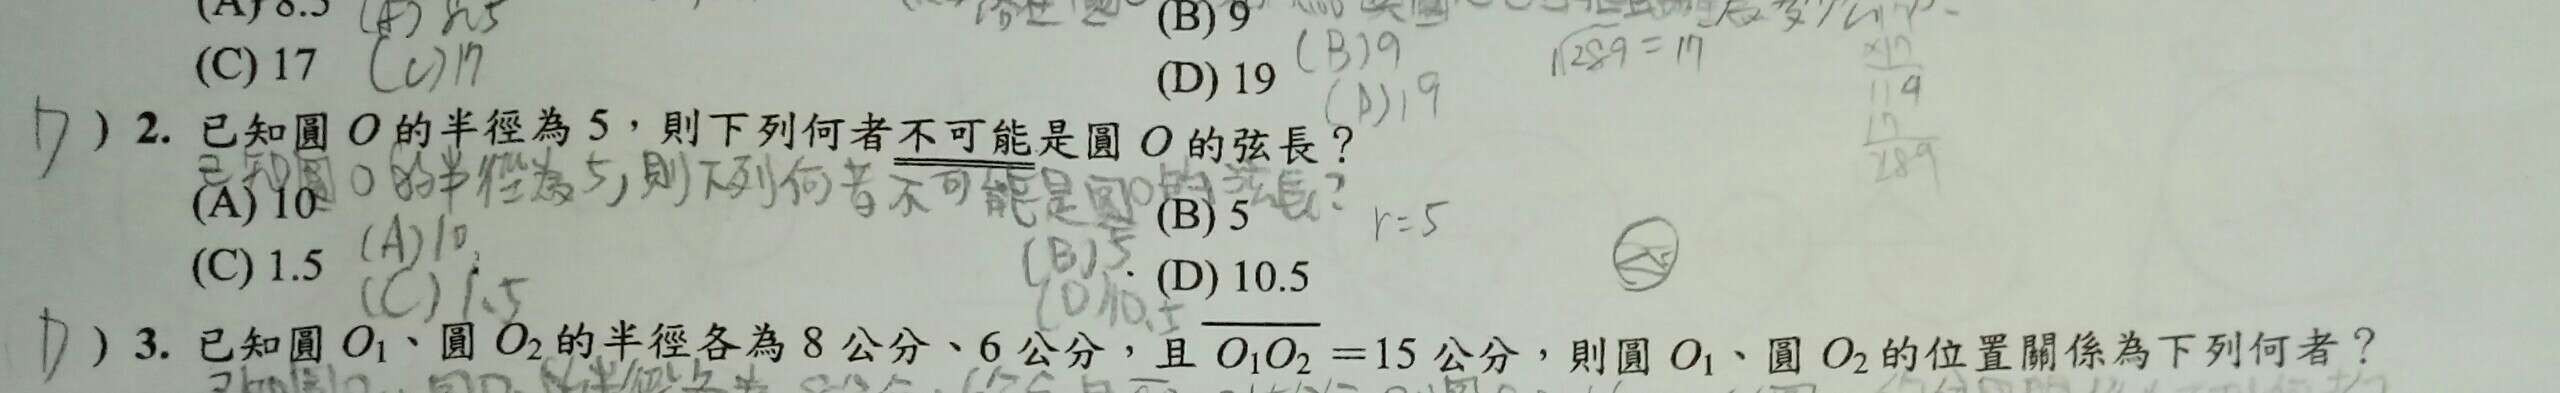 (A) 8.5 (A) 8.5 (B) 9
(C) 17 (C) 17 (D) 19 (B) 9 √289 = 17
(D) 19
×17
119
17
289
D ) 2. 已知圓 O 的半徑為 5，則下列何者不可能是圓 O 的弦長？
已知圓O的半徑為5,則下列何者不可能是圓O的弦長?
(A) 10 (B) 5 r=5
(A) 10 (B) 5
(C) 1.5 (D) 10.5
(C) 1.5 (D) 10.5
D ) 3. 已知圓 O₁、圓 O₂ 的半徑各為 8 公分、6 公分，且 O₁O₂ ＝15 公分，則圓 O₁、圓 O₂ 的位置關係為下列何者？